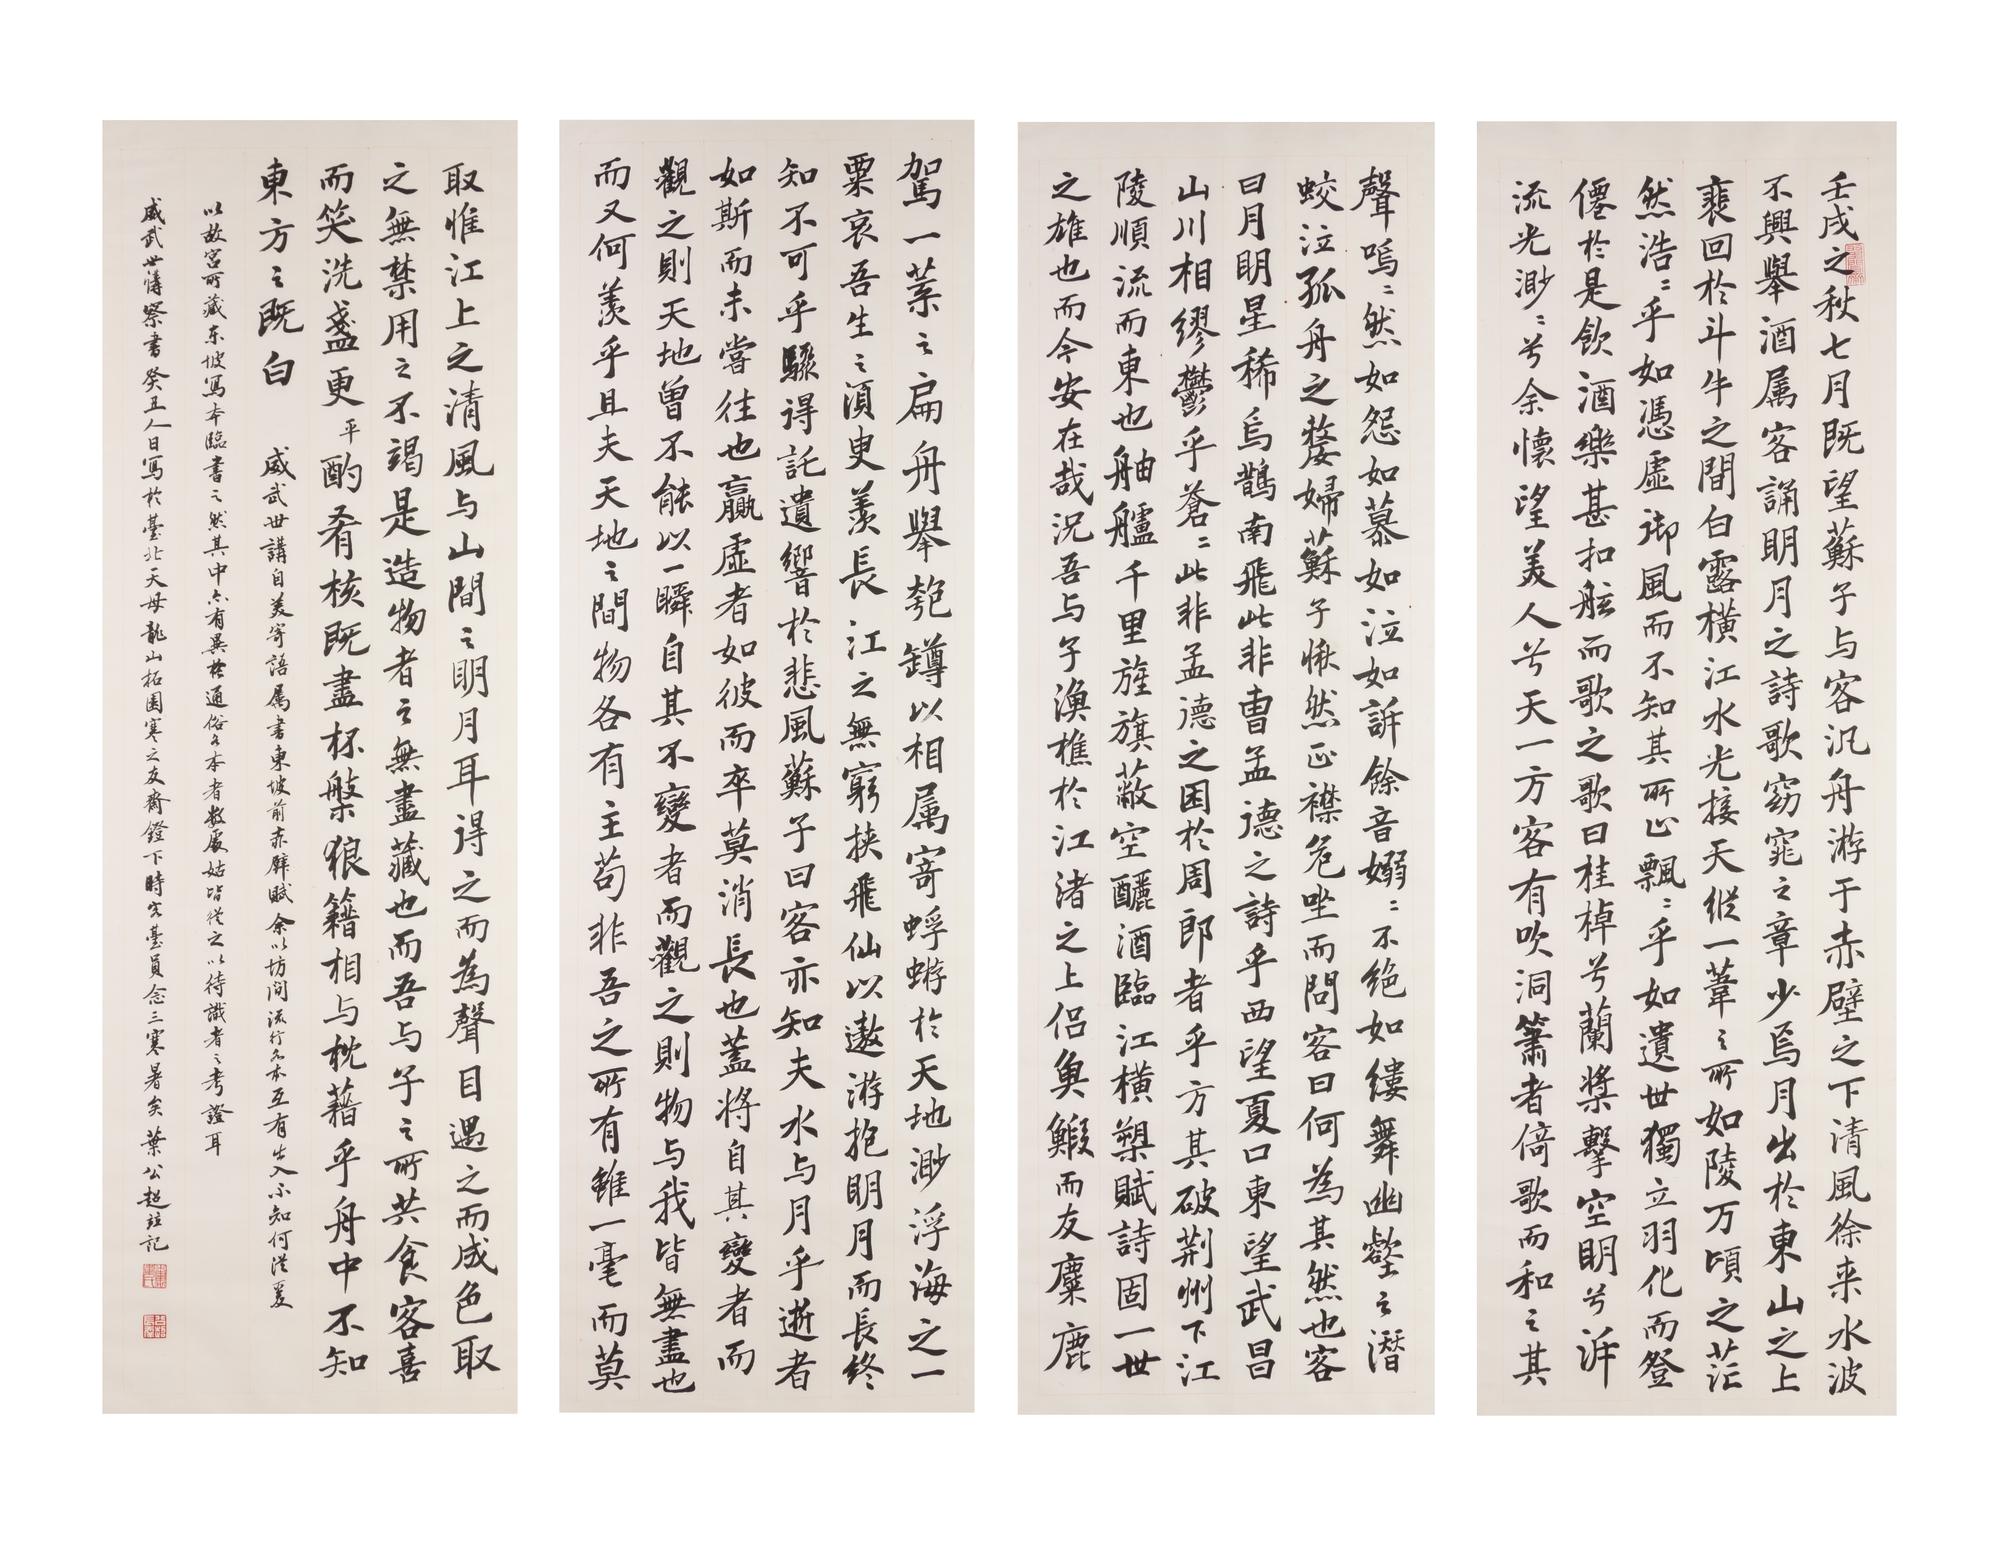 壬戌之秋七月既望蘇子与客汎舟游于赤壁之下清風徐来水波
不興舉酒属客誦明月之詩歌窈窕之章少焉月出於東山之上
裴回於斗牛之間白露橫江水光接天縱一葦之所如陵万頃之茫
然浩〻乎如憑虛御風而不知其所止飄〻乎如遺世獨立羽化而登
僊於是飲酒樂甚扣舷而歌之歌曰桂棹兮蘭槳擊空明兮泝
流光渺〻兮余懷望美人兮天一方客有吹洞簫者倚歌而和之其
聲嗚〻然如怨如慕如泣如訴餘音嫋〻不絕如縷舞幽壑之潛
蛟泣孤舟之嫠婦蘇子愀然正襟危坐而問客曰何為其然也客
曰月明星稀烏鵲南飛此非曹孟德之詩乎西望夏口東望武昌
山川相繆鬱乎蒼〻此非孟德之困於周郎者乎方其破荆州下江
陵順流而東也舳艫千里旌旗蔽空釃酒臨江橫槊賦詩固一世
之雄也而今安在哉況吾与子漁樵於江渚之上侶魚鰕而友麋鹿
駕一葉之扁舟舉匏罇以相属寄蜉蝣於天地渺浮海之一
粟哀吾生之須臾羨長江之無窮挟飛仙以遨游抱明月而長終
知不可乎驟得託遺響於悲風蘇子曰客亦知夫水与月乎逝者
如斯而未嘗往也贏虛者如彼而卒莫消長也蓋將自其變者而
觀之則天地曾不能以一瞬自其不變者而觀之則物与我皆無盡也
而又何羨乎且夫天地之間物各有主苟非吾之所有雖一毫而莫
取惟江上之清風与山間之明月耳得之而為聲目遇之而成色取
之無禁用之不竭是造物者之無盡藏也而吾与子之所共食客喜
而笑洗盞更平酌肴核既盡杯槃狼籍相与枕藉乎舟中不知
東方之既白
威武世講自美寄語属書東坡前赤壁賦余以坊间流行各本互有出入不知何従爰
以故宮所藏东坡寫本臨書之然其中亦有異於通俗各本者数處姑皆従之以待識者之考證耳
威武世講詧書癸丑人日寫於臺北天母龍山柘園寒之友齋鐙下時客臺員念三寒暑矣葉公超并記